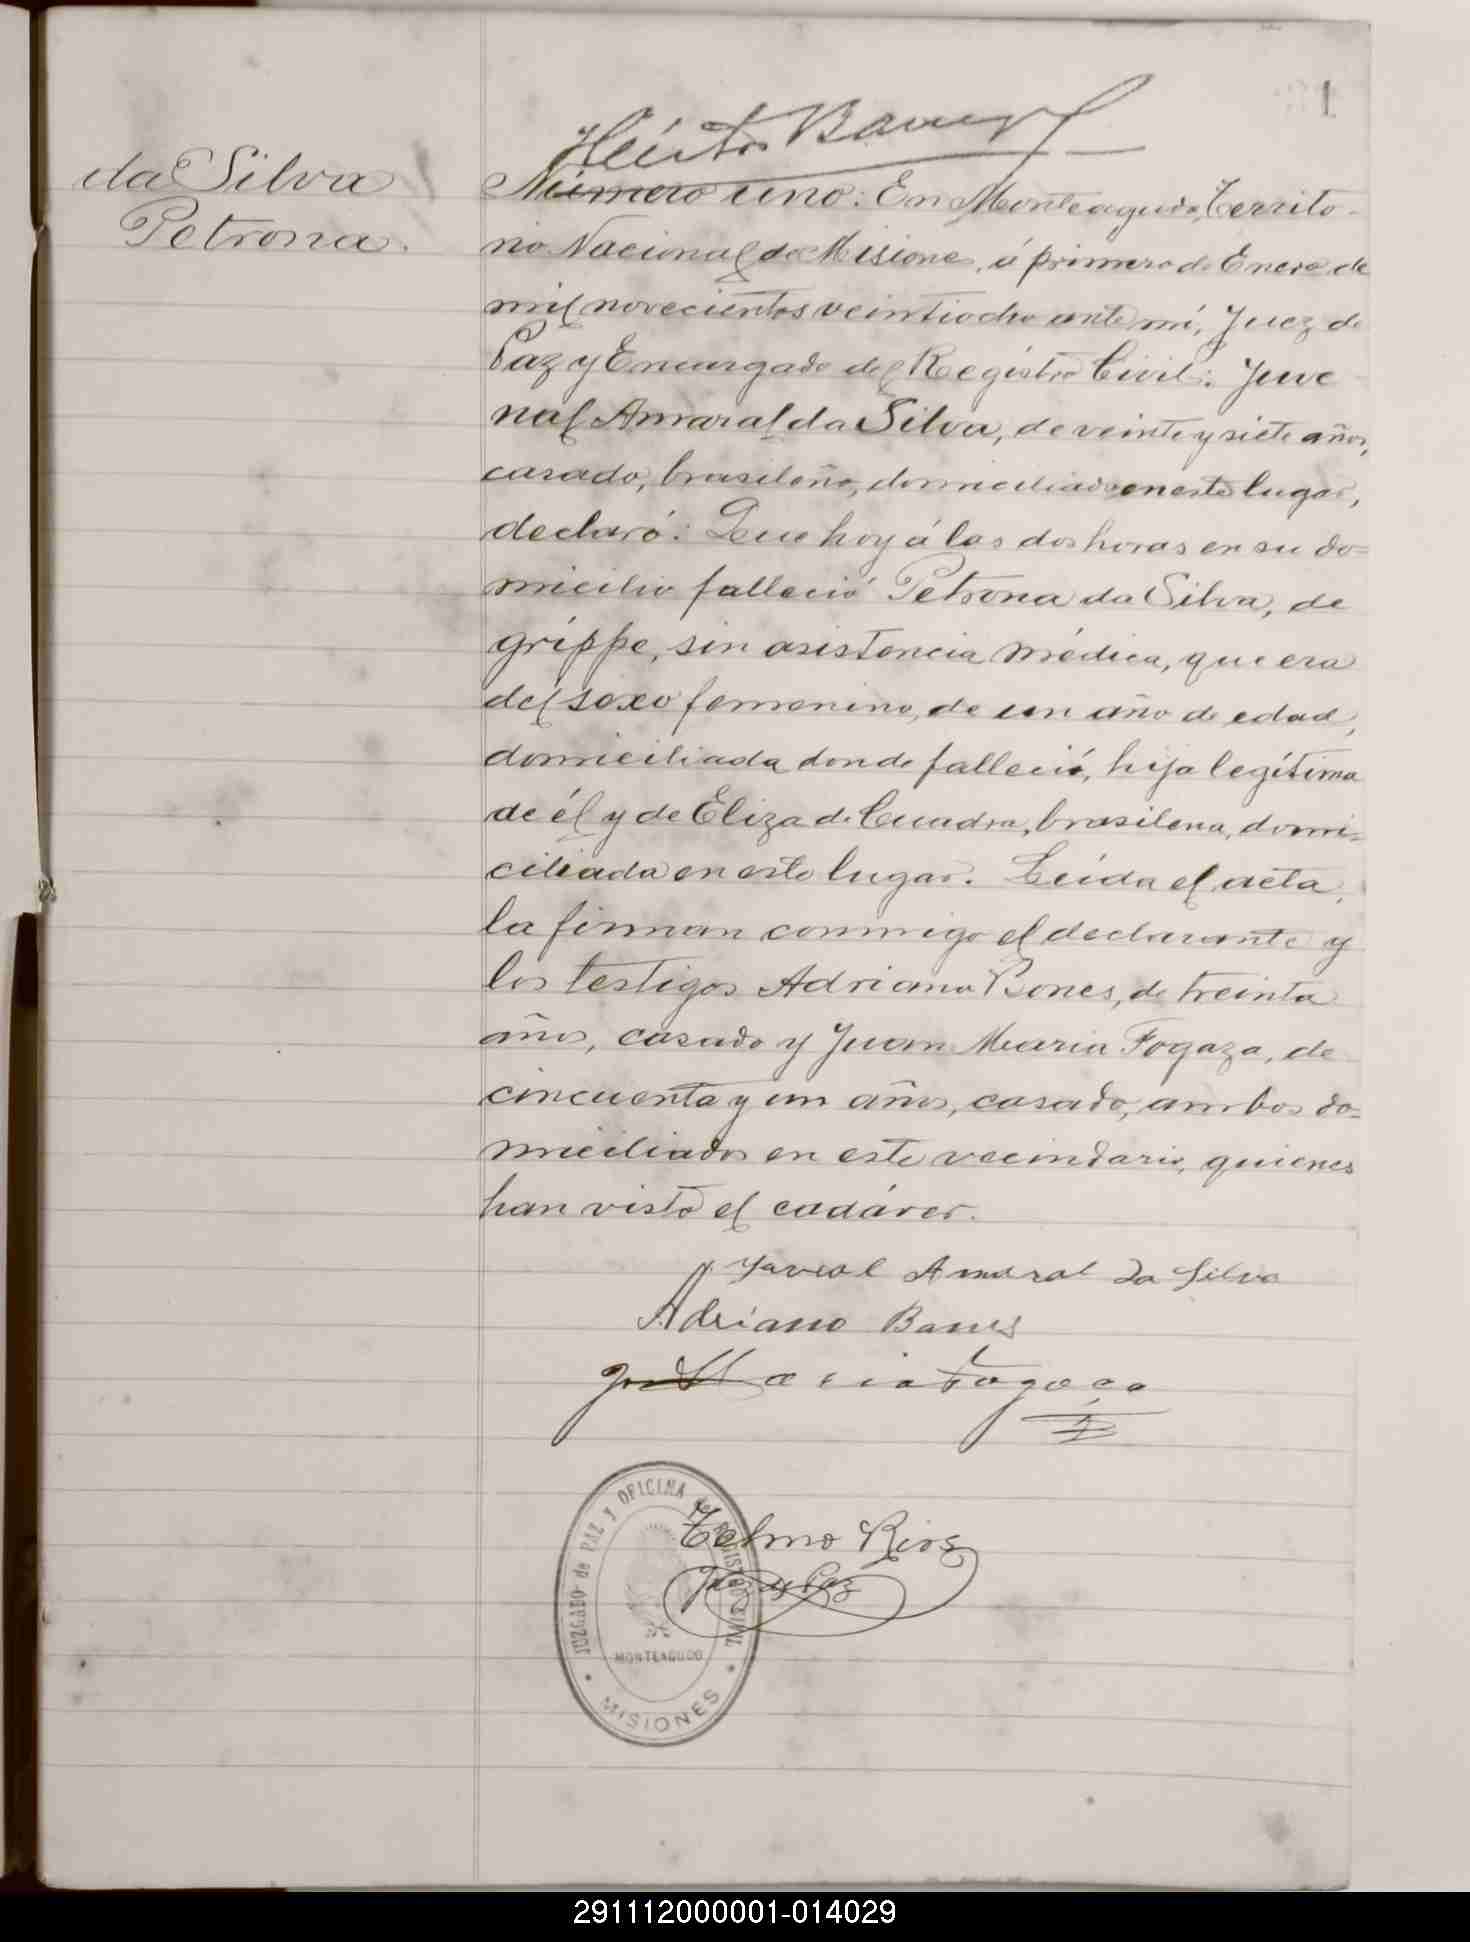 1
Héctor
da Silva
Petrona.
Número uno: En Monteagudo, Territo-
rio Nacional de Misiones, á primero de Enero de
mil novecientos veintiocho ante mí, Juez de
Paz y Encargado del Registro Civil: Juve
nal Amaral da Silva, de veinte y siete años,
casado, brasileño, domiciliado en este lugar,
declaró: Que hoy á las dos horas en su do=
micilio falleció Petrona da Silva, de
grippe, sin asistencia médica, que era
del sexo femenino, de un año de edad,
domiciliada donde falleció, hija legítima
de él y de Eliza de Cuadra, brasilena, domi=
ciliada en este lugar. Leída el acta,
la firman conmigo el declarante y
los testigos Adriano Bones, de treinta
años, casado y Juan Maria Fogaza, de
cincuenta y un años, casado, ambos do=
miciliados en este vecindario, quienes
han visto el cadáver.
Amaral da Silva
Adriano
Maria Fogaça
Telmo Rios
Juez de Paz
JUZGADO de PAZ Y OFICINA del REGISTRO CIVIL
MONTEAGUDO
MISIONES
291112000001-014029